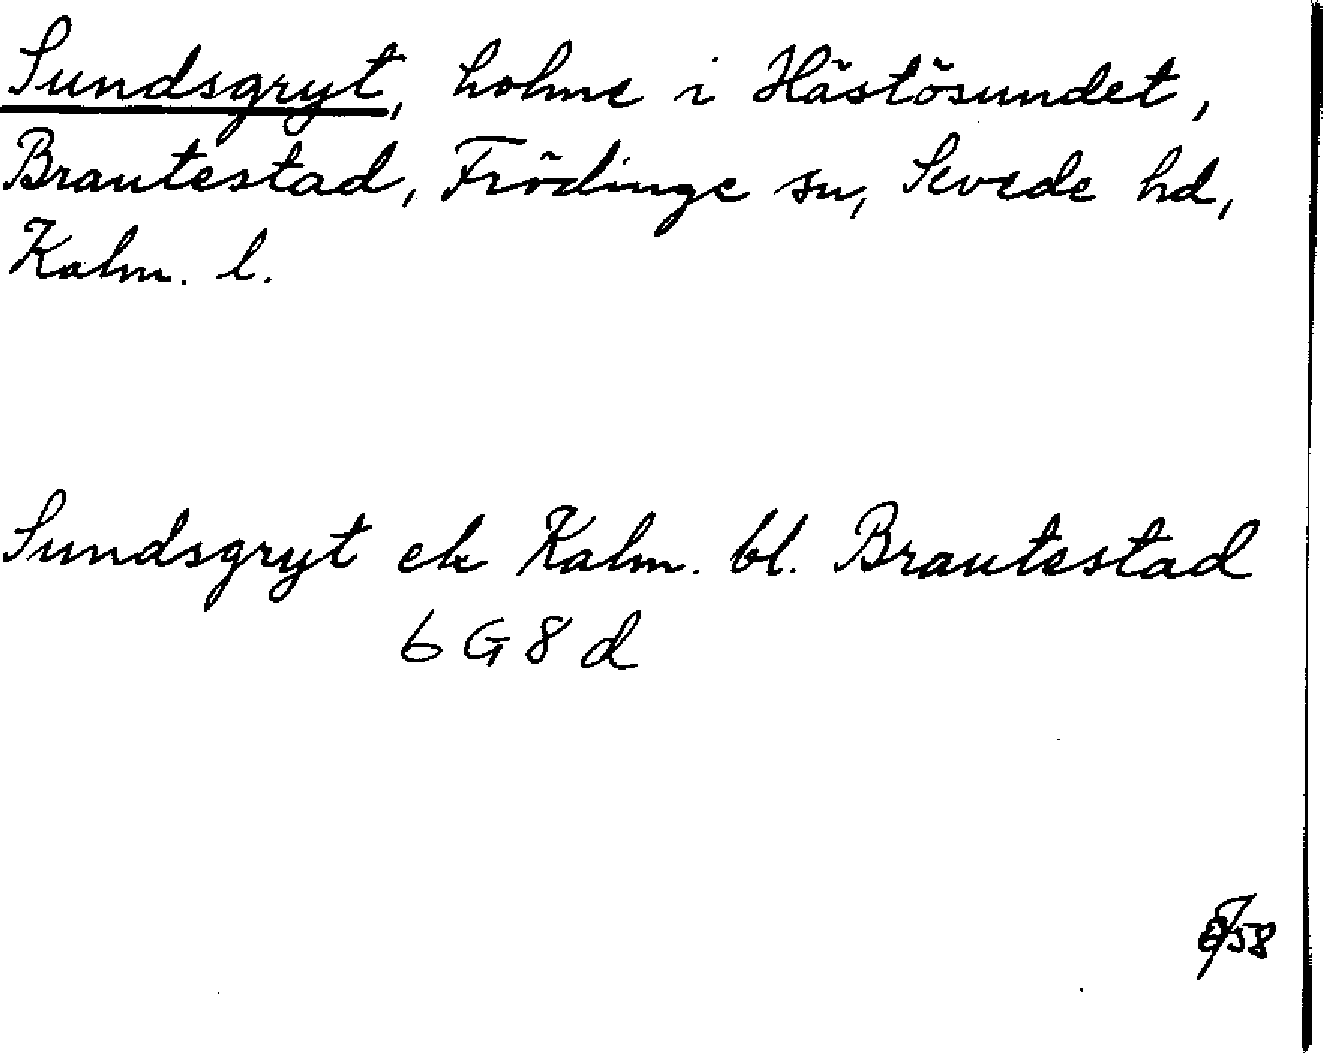 Sundsgryt, holme i Hästösundet,
Brantestad, Frödinge sn, Sevede hd,
Kalm. l.
Sundsgryt ek Kalm. bl. Brantestad
6 G 8 d